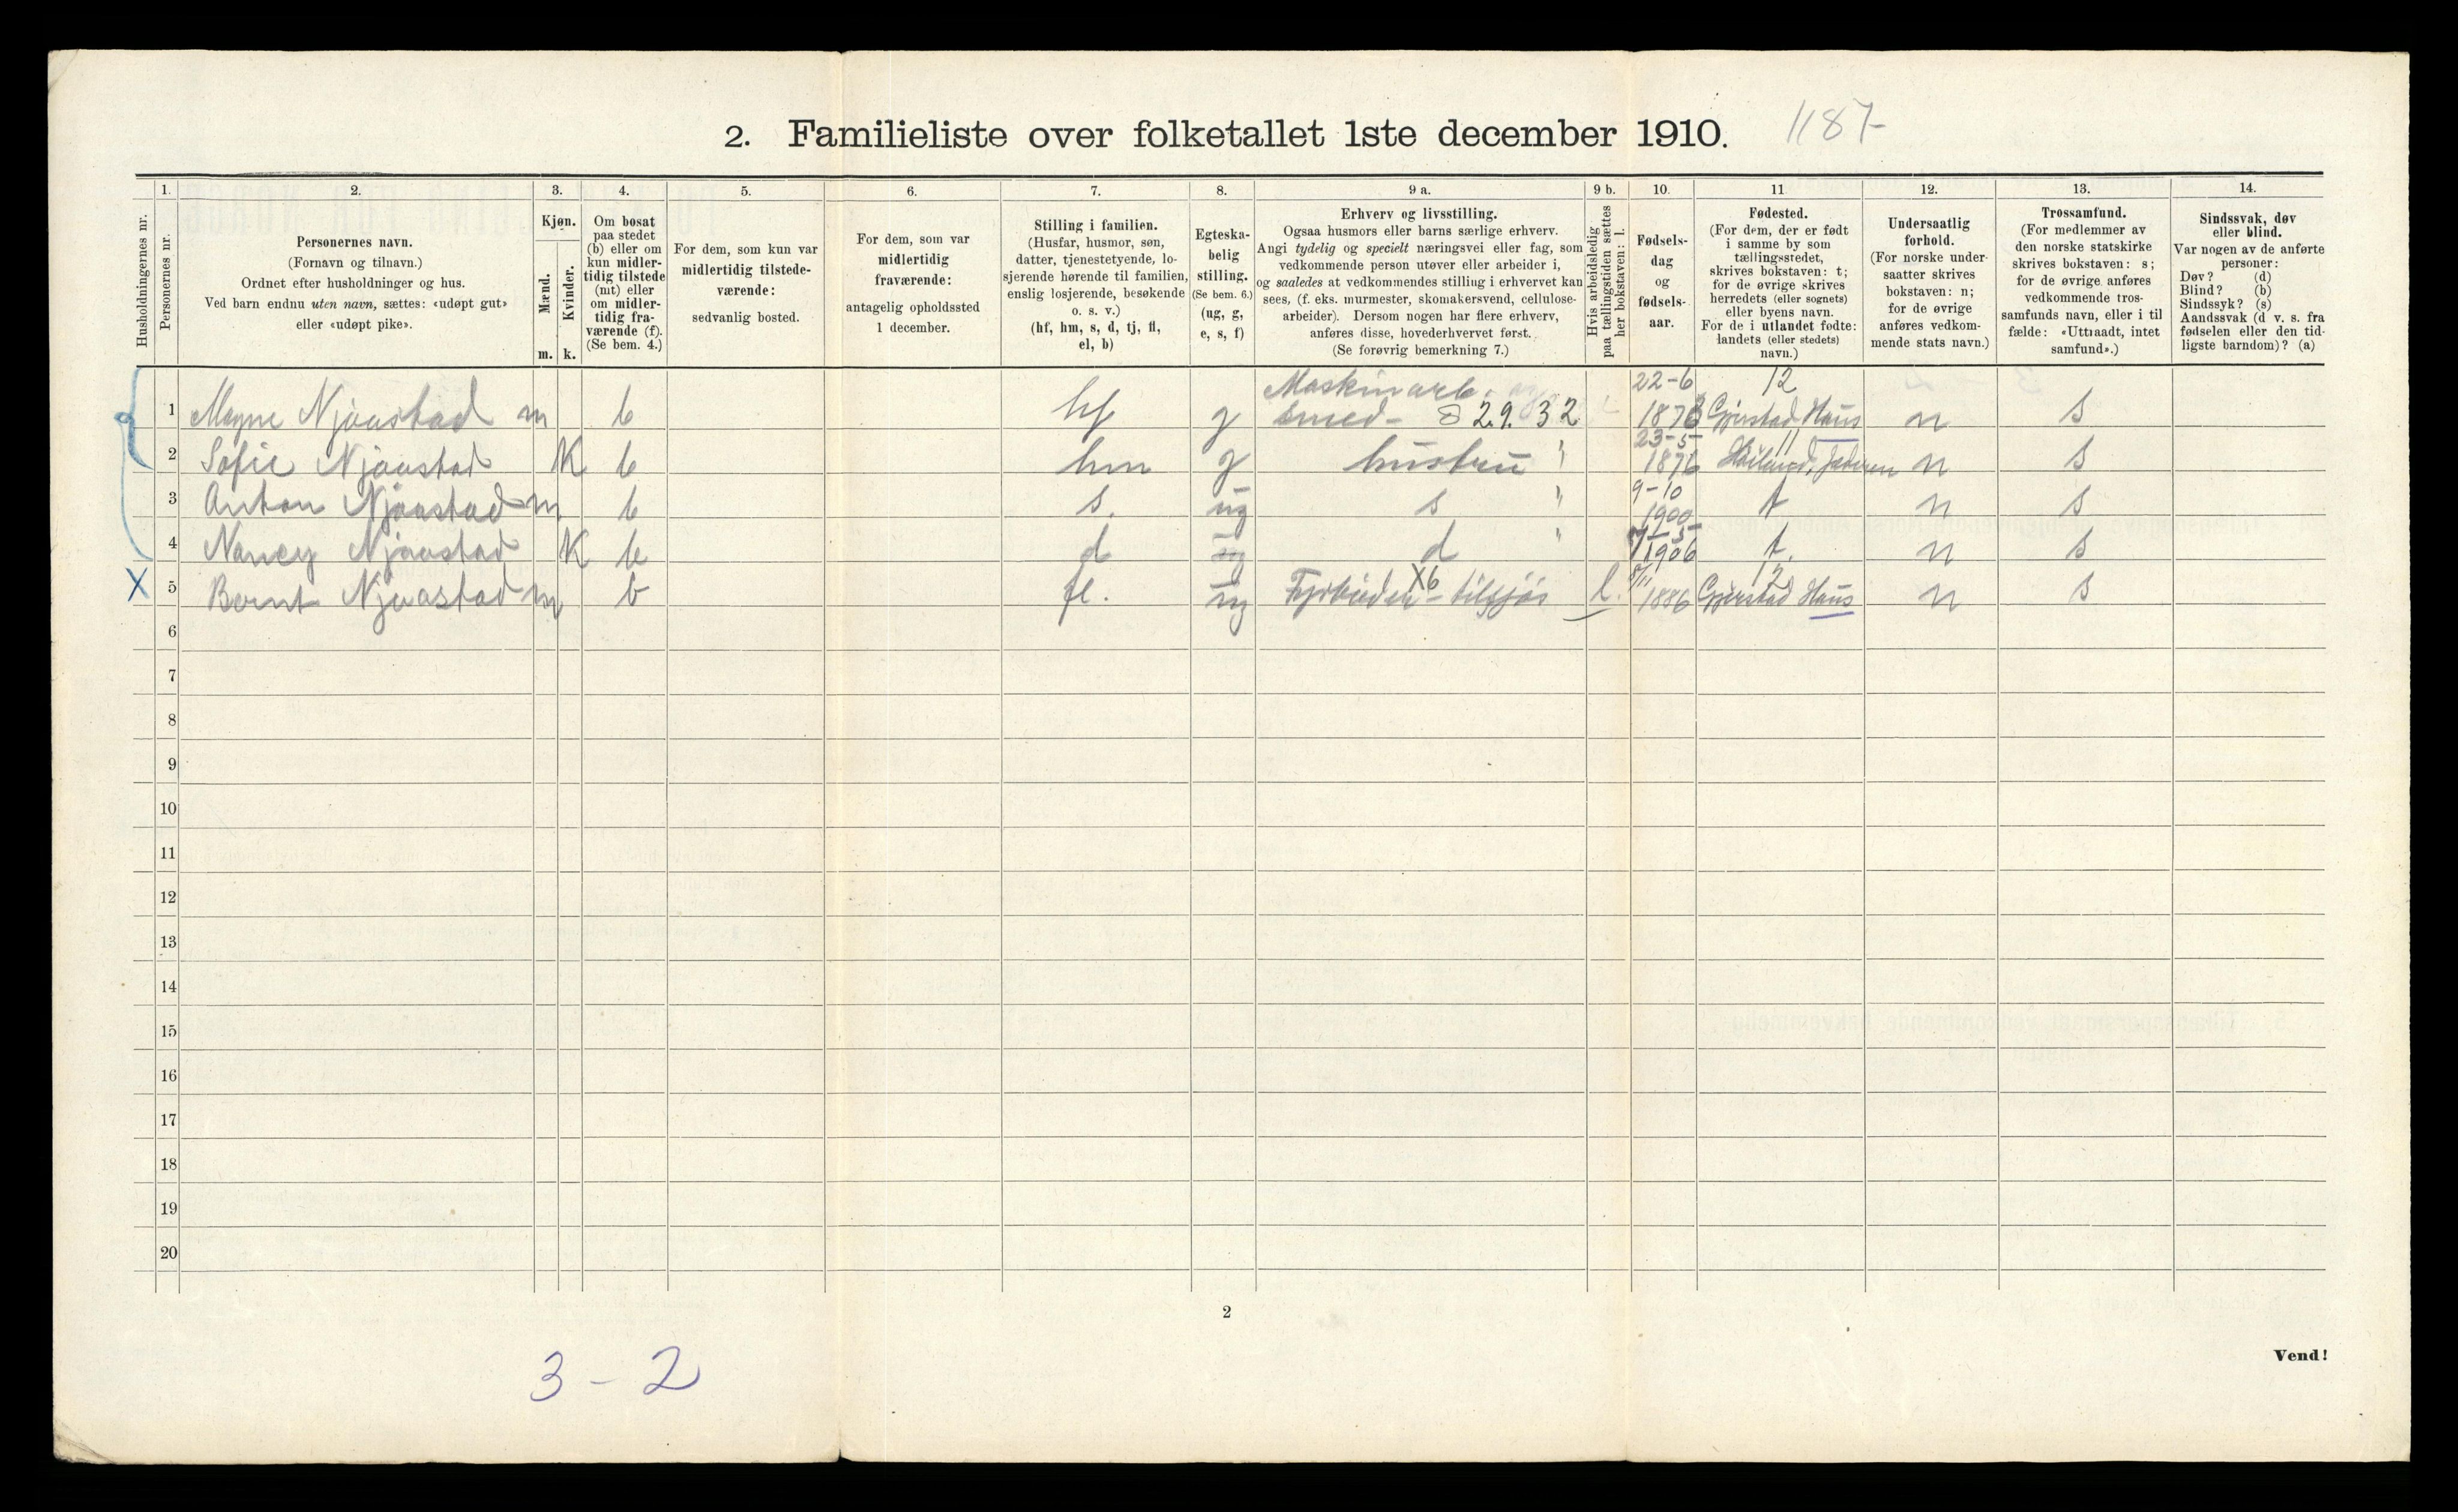 2. Familieliste over folketallet 1ste december 1910. 1187
Husholdningernes nr.
1.
Personernes nr.
2.
Personernes navn.
(Fornavn og tilnavn.)
Ordnet efter husholdninger og hus.
Ved barn endnu uten navn, sættes: «udøpt gut»
eller «udøpt pike».
3.
Kjøn.
Mænd.
Kvinder.
m. k.
4.
Om bosat
paa stedet
(b) eller om
kun midler-
tidig tilstede
(mt) eller
om midler-
tidig fra-
værende (f).
(Se bem. 4.)
5.
For dem, som kun var
midlertidig tilstede-
værende:
sedvanlig bosted.
6.
For dem, som var
midlertidig
fraværende:
antagelig opholdssted
1 december.
7.
Stilling i familien.
(Husfar, husmor, søn,
datter, tjenestetyende, lo-
sjerende hørende til familien,
enslig losjerende, besøkende
o. s. v.)
(hf, hm, s, d, tj, fl,
el, b)
8.
Egteska-
belig
stilling.
(Se bem. 6.)
(ug, g,
e, s, f)
9 a.
Erhverv og livsstilling.
Ogsaa husmors eller barns særlige erhverv.
Angi tydelig og specielt næringsvei eller fag, som
vedkommende person utøver eller arbeider i,
og saaledes at vedkommendes stilling i erhvervet kan
sees, (f. eks. murmester, skomakersvend, cellulose-
arbeider). Dersom nogen har flere erhverv,
anføres disse, hovederhvervet først.
(Se forøvrig bemerkning 7.)
9 b.
Hvis arbeidsledig
paa tællingstiden sættes
her bokstaven: l.
10.
Fødsels-
dag
og
fødsels-
aar.
11
Fødested.
(For dem, der er født
i samme by som
tællingsstedet,
skrives bokstaven: t;
for de øvrige skrives
herredets (eller sognets)
eller byens navn.
For de i utlandet fødte:
landets (eller stedets)
navn.)
12.
Undersaatlig
forhold.
(For norske under-
saatter skrives
bokstaven: n;
for de øvrige
anføres vedkom-
mende stats navn.)
13.
Trossamfund.
(For medlemmer av
den norske statskirke
skrives bokstaven: s;
for de øvrige anføres
vedkommende tros-
samfunds navn, eller i til
fælde: «Uttraadt, intet
samfund».)
14.
Sindssvak, døv
eller blind.
Var nogen av de anførte
personer:
Døv? (d)
Blind? (b)
Sindssyk? (s)
Aandssvak (d v. s. fra
fødselen eller den tid-
ligste barndom)? (a)
Maskinarb. 22-6 12
1 Magne Njaastad m b hf g smed- 8 2.9. 32 1873 Gjerstad Haus n s
23-5 11
2 Sofie Njaastad K b hm g hustru " 1876 n s
9-10
3 Anton Njaastad m b s. ug s " 1900 t n s
4 Nancy Njaastad K b d ug d " 1906 t. n s
X6 8/11 12
X 5 Bernt Njaastad m b fl. ug Fyrbøder - tilsjøs l. 1886 Gjerstad Haus n s
6
7
8
9
10
11
12
13
14
15
16
17
18
19
20
2
Vend!
3 - 2